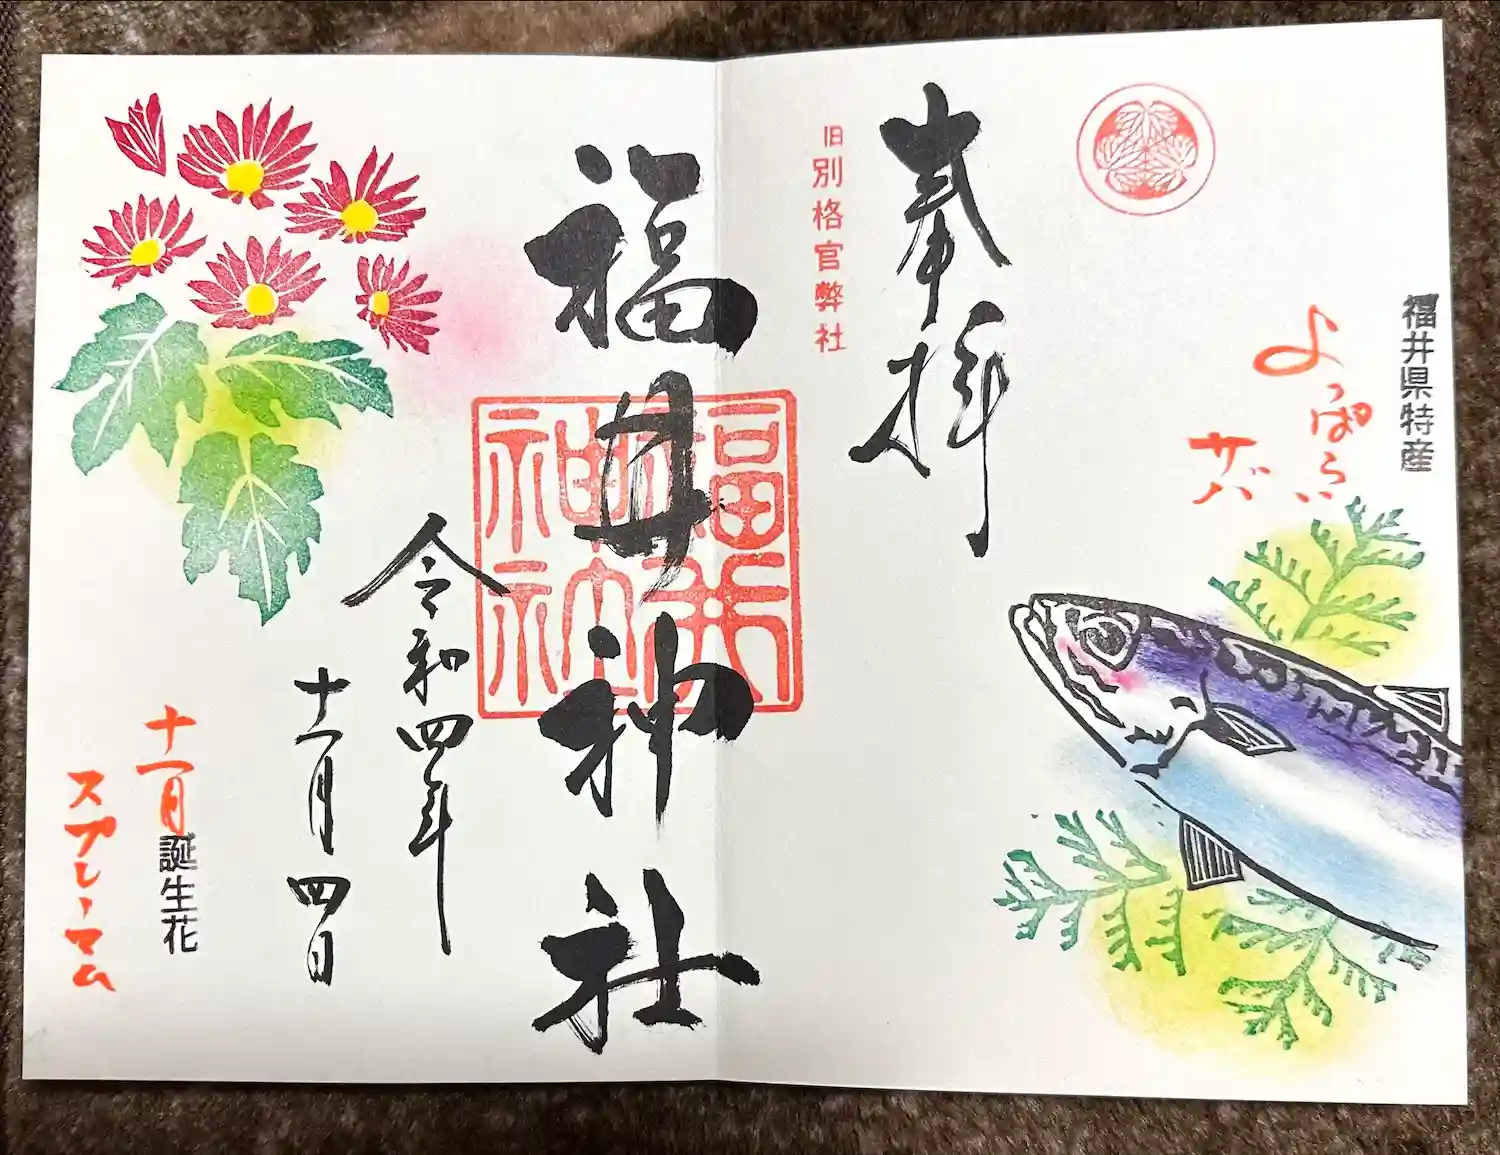 福井県特産
よっぱらい
サバ
奉拝
旧別格官弊社
福井神社
福井神社
令和四年
十一月四日
十一月誕生花
スプレーマム